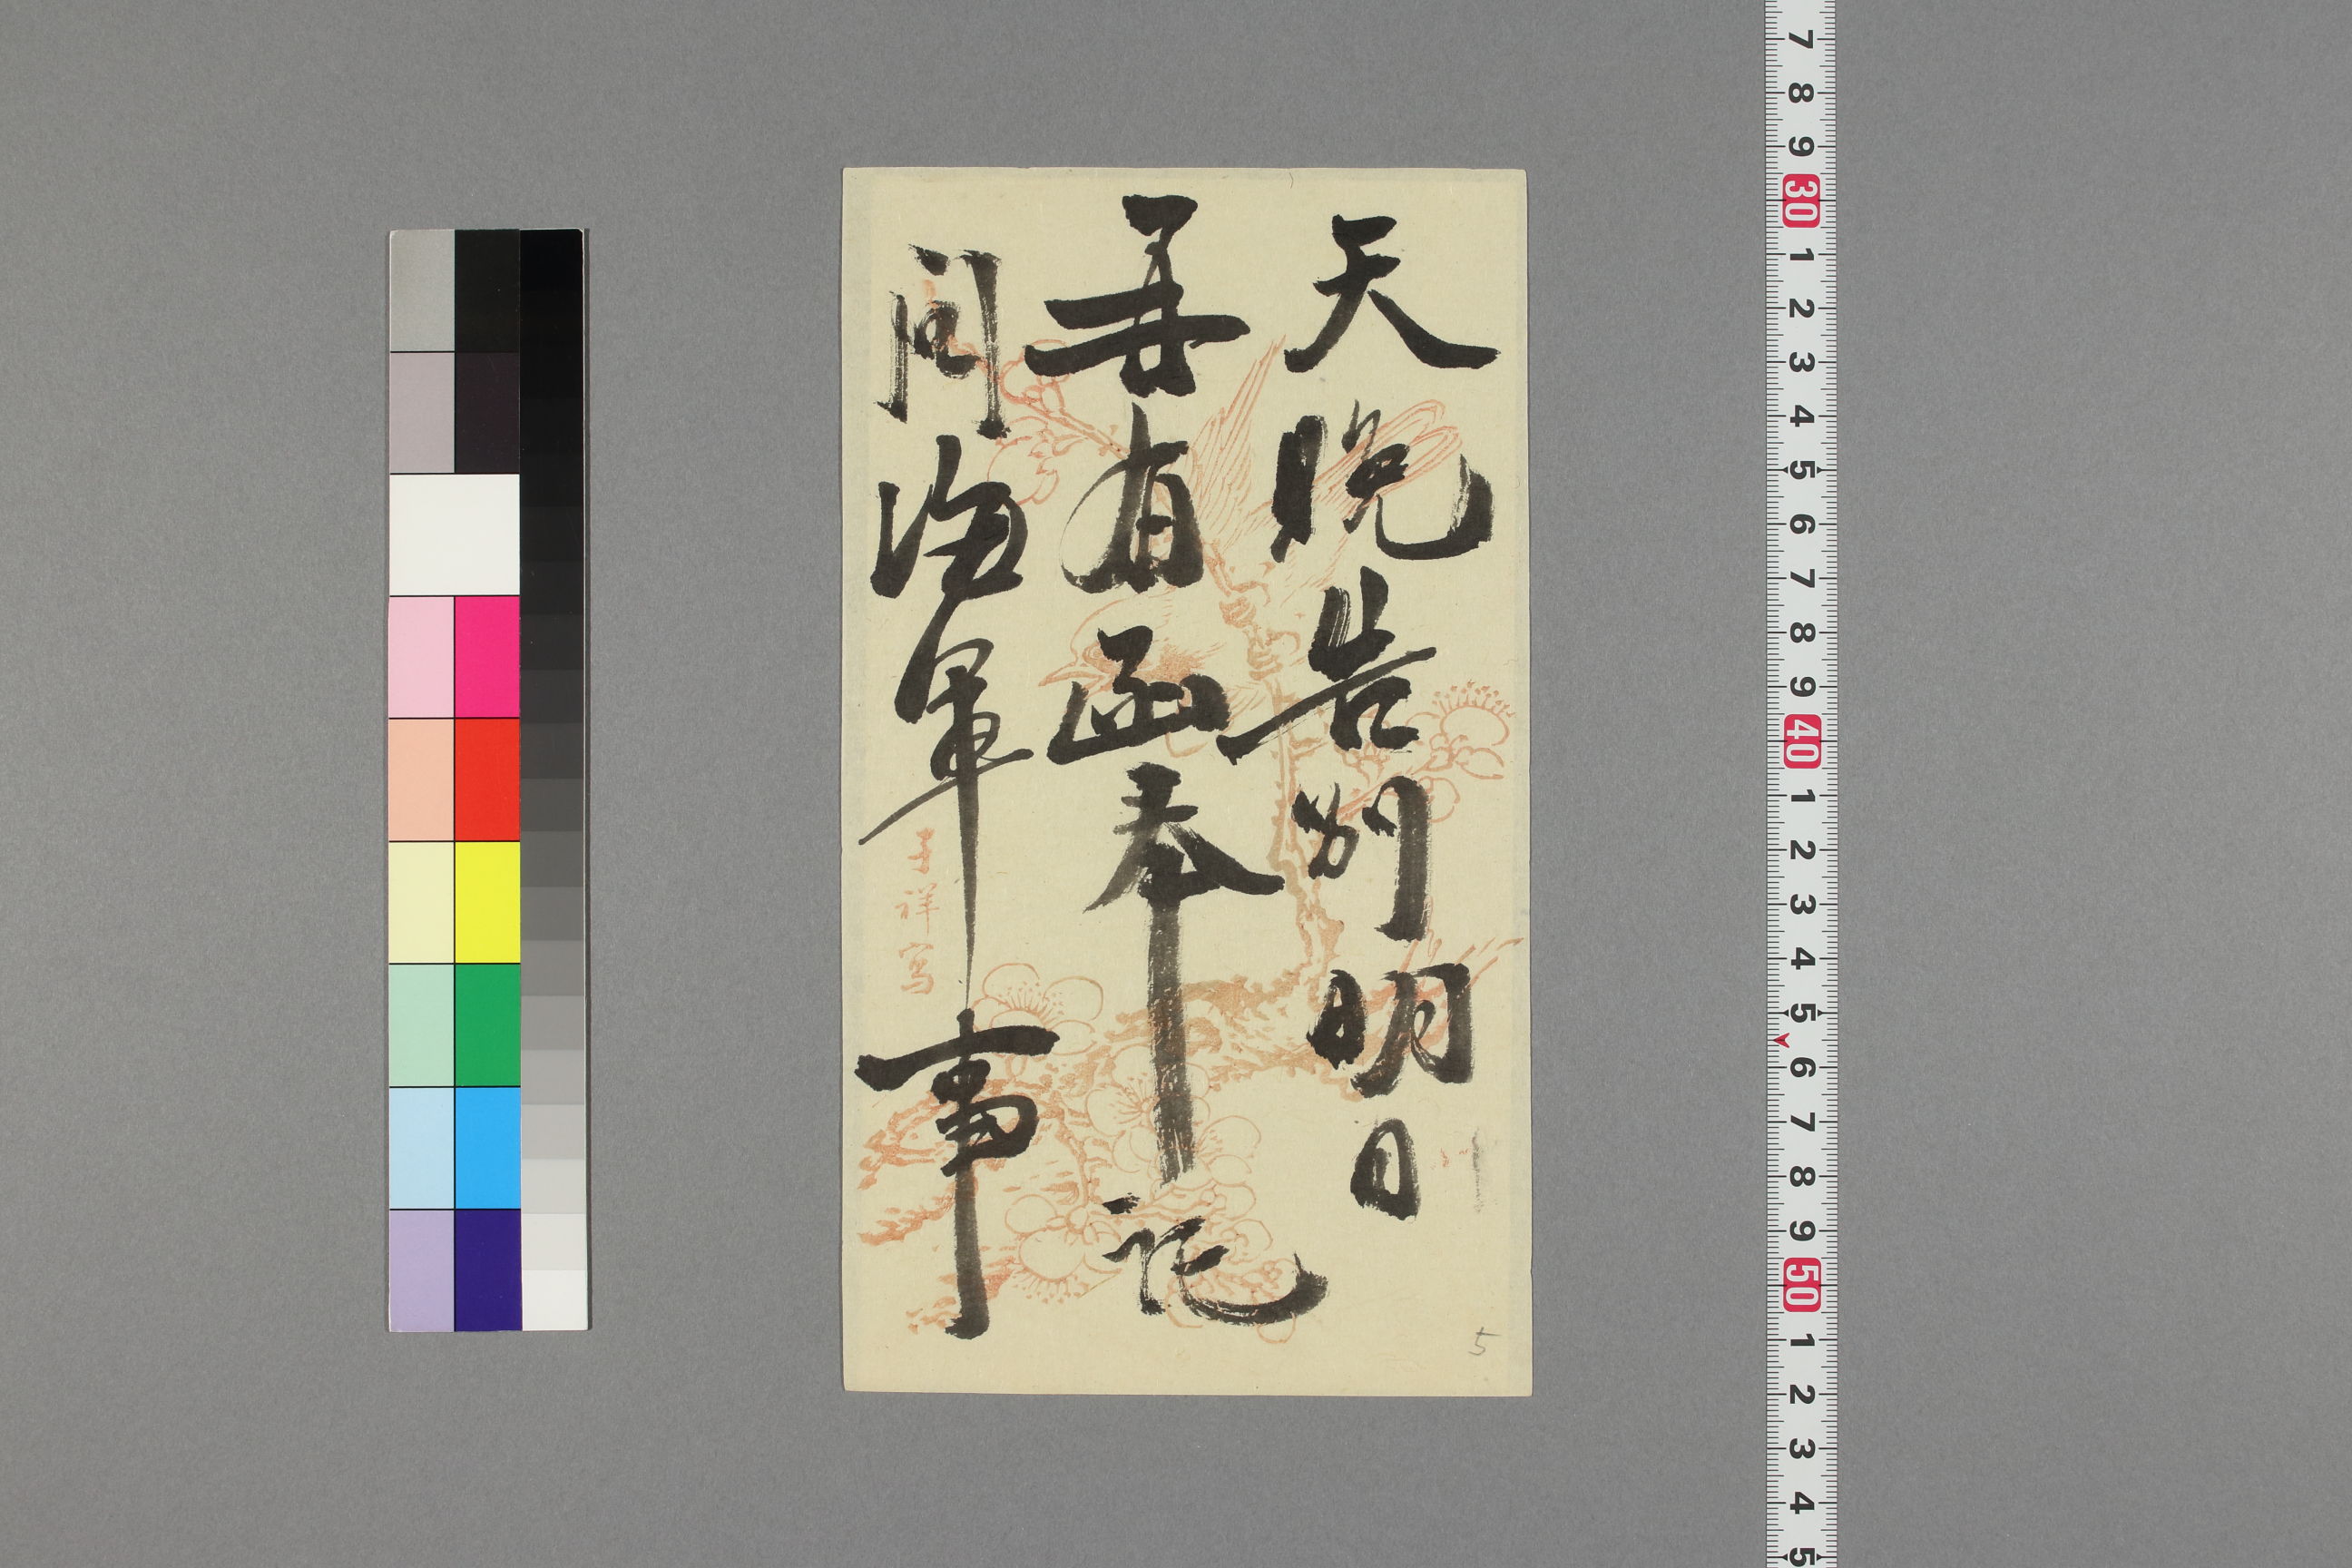 天晚告別明日
再有函奉託
問海軍事
子祥寫
5
7 8 9 30 1 2 3 4 5 6 7 8 9 40 1 2 3 4 5 6 7 8 9 50 1 2 3 4 5